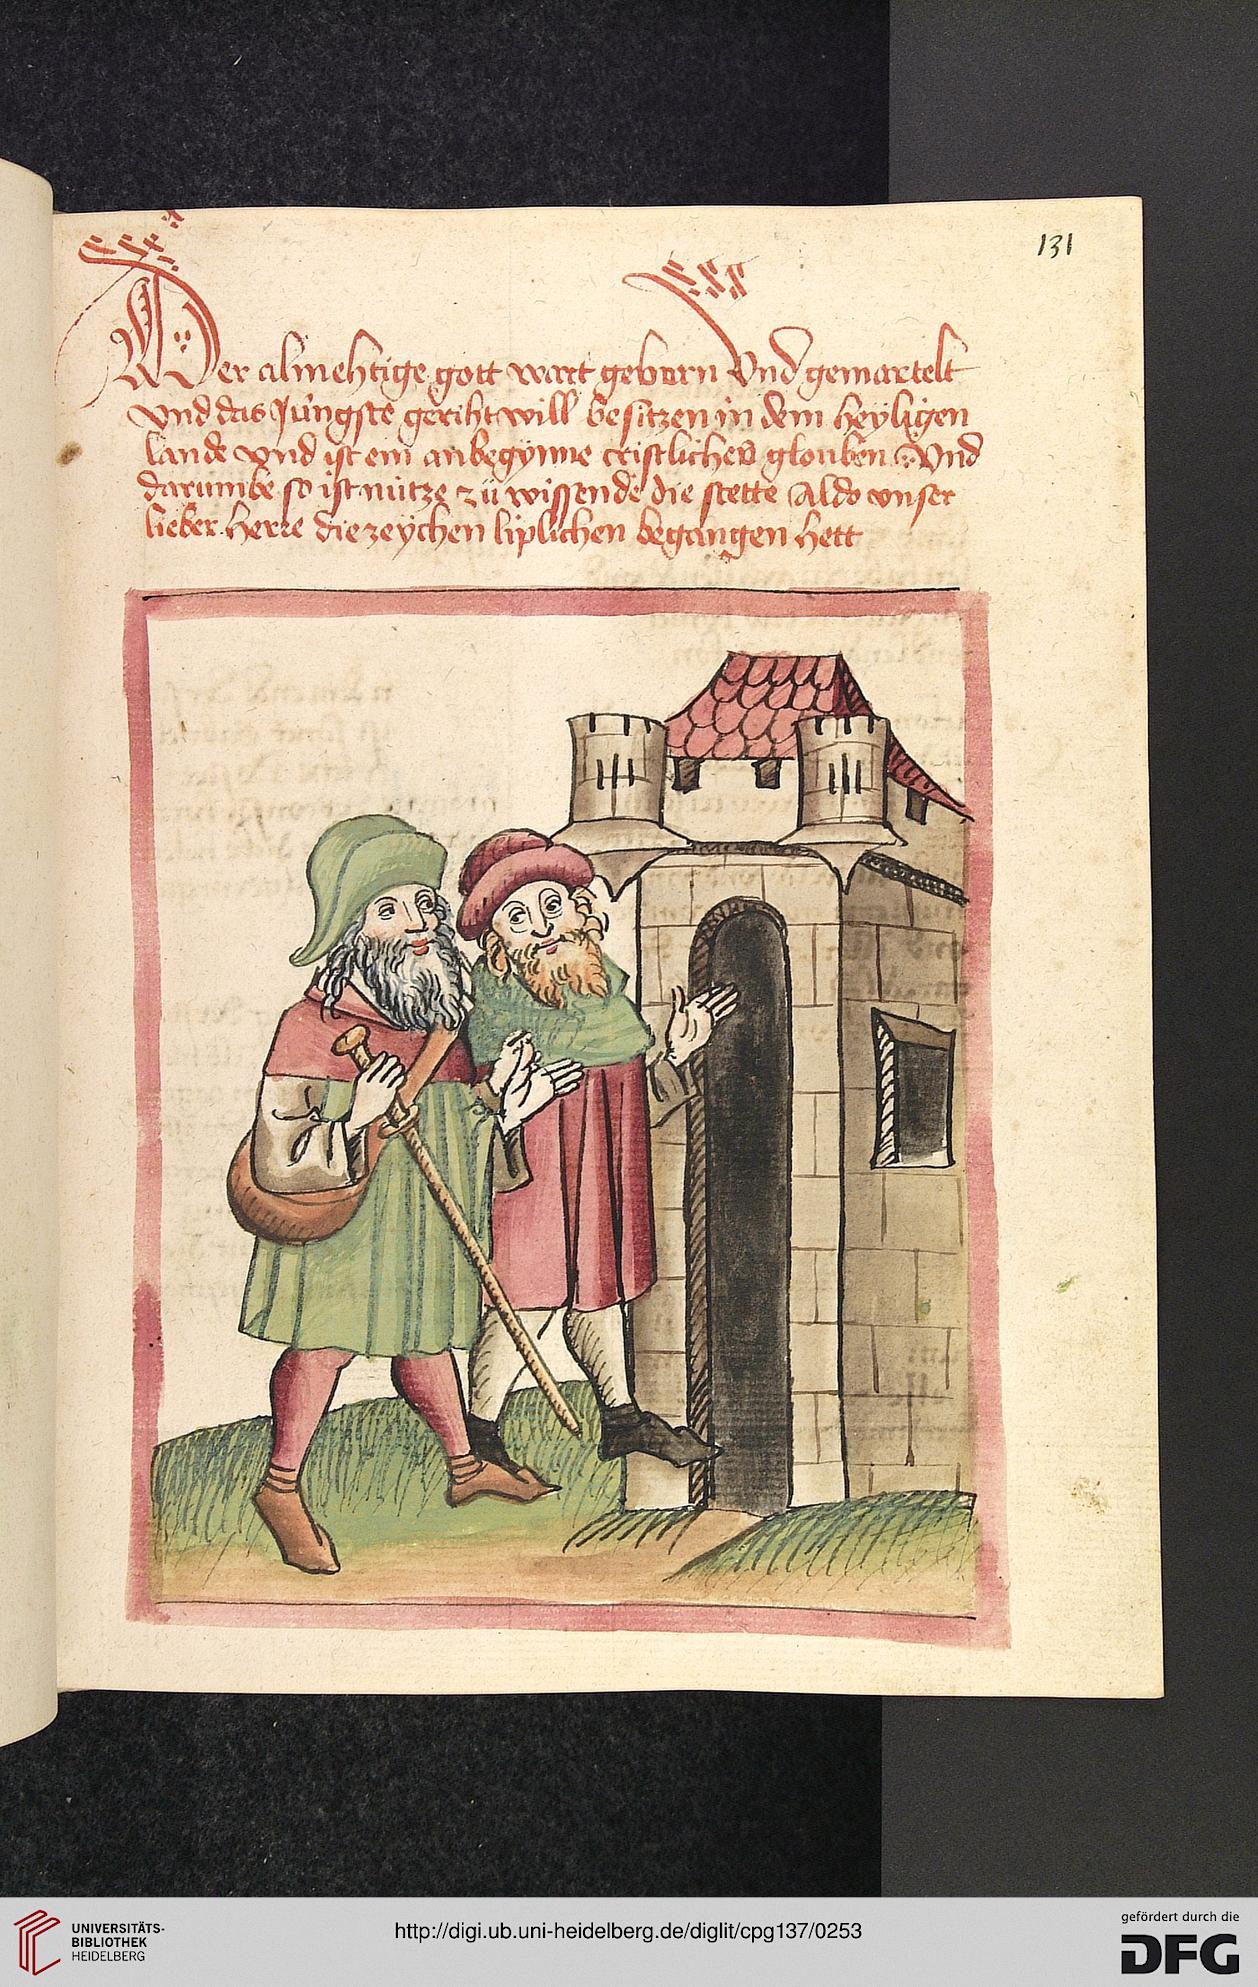 131
Der almehtige gott wart geborn Vnd gemartelt
vnd das Jungste geriht will besitzen in dem heyligen
lande vnd ist ein anbegynne cristliches glouben Vnd
darumbe so ist nutze zü wissende die stette Aldo vnser
lieber herre die zeychen liplichen begangen hett
UNIVERSITÄTS-
BIBLIOTHEK
HEIDELBERG
http://digi.ub.uni-heidelberg.de/diglit/cpg137/0253
gefördert durch die
DFG